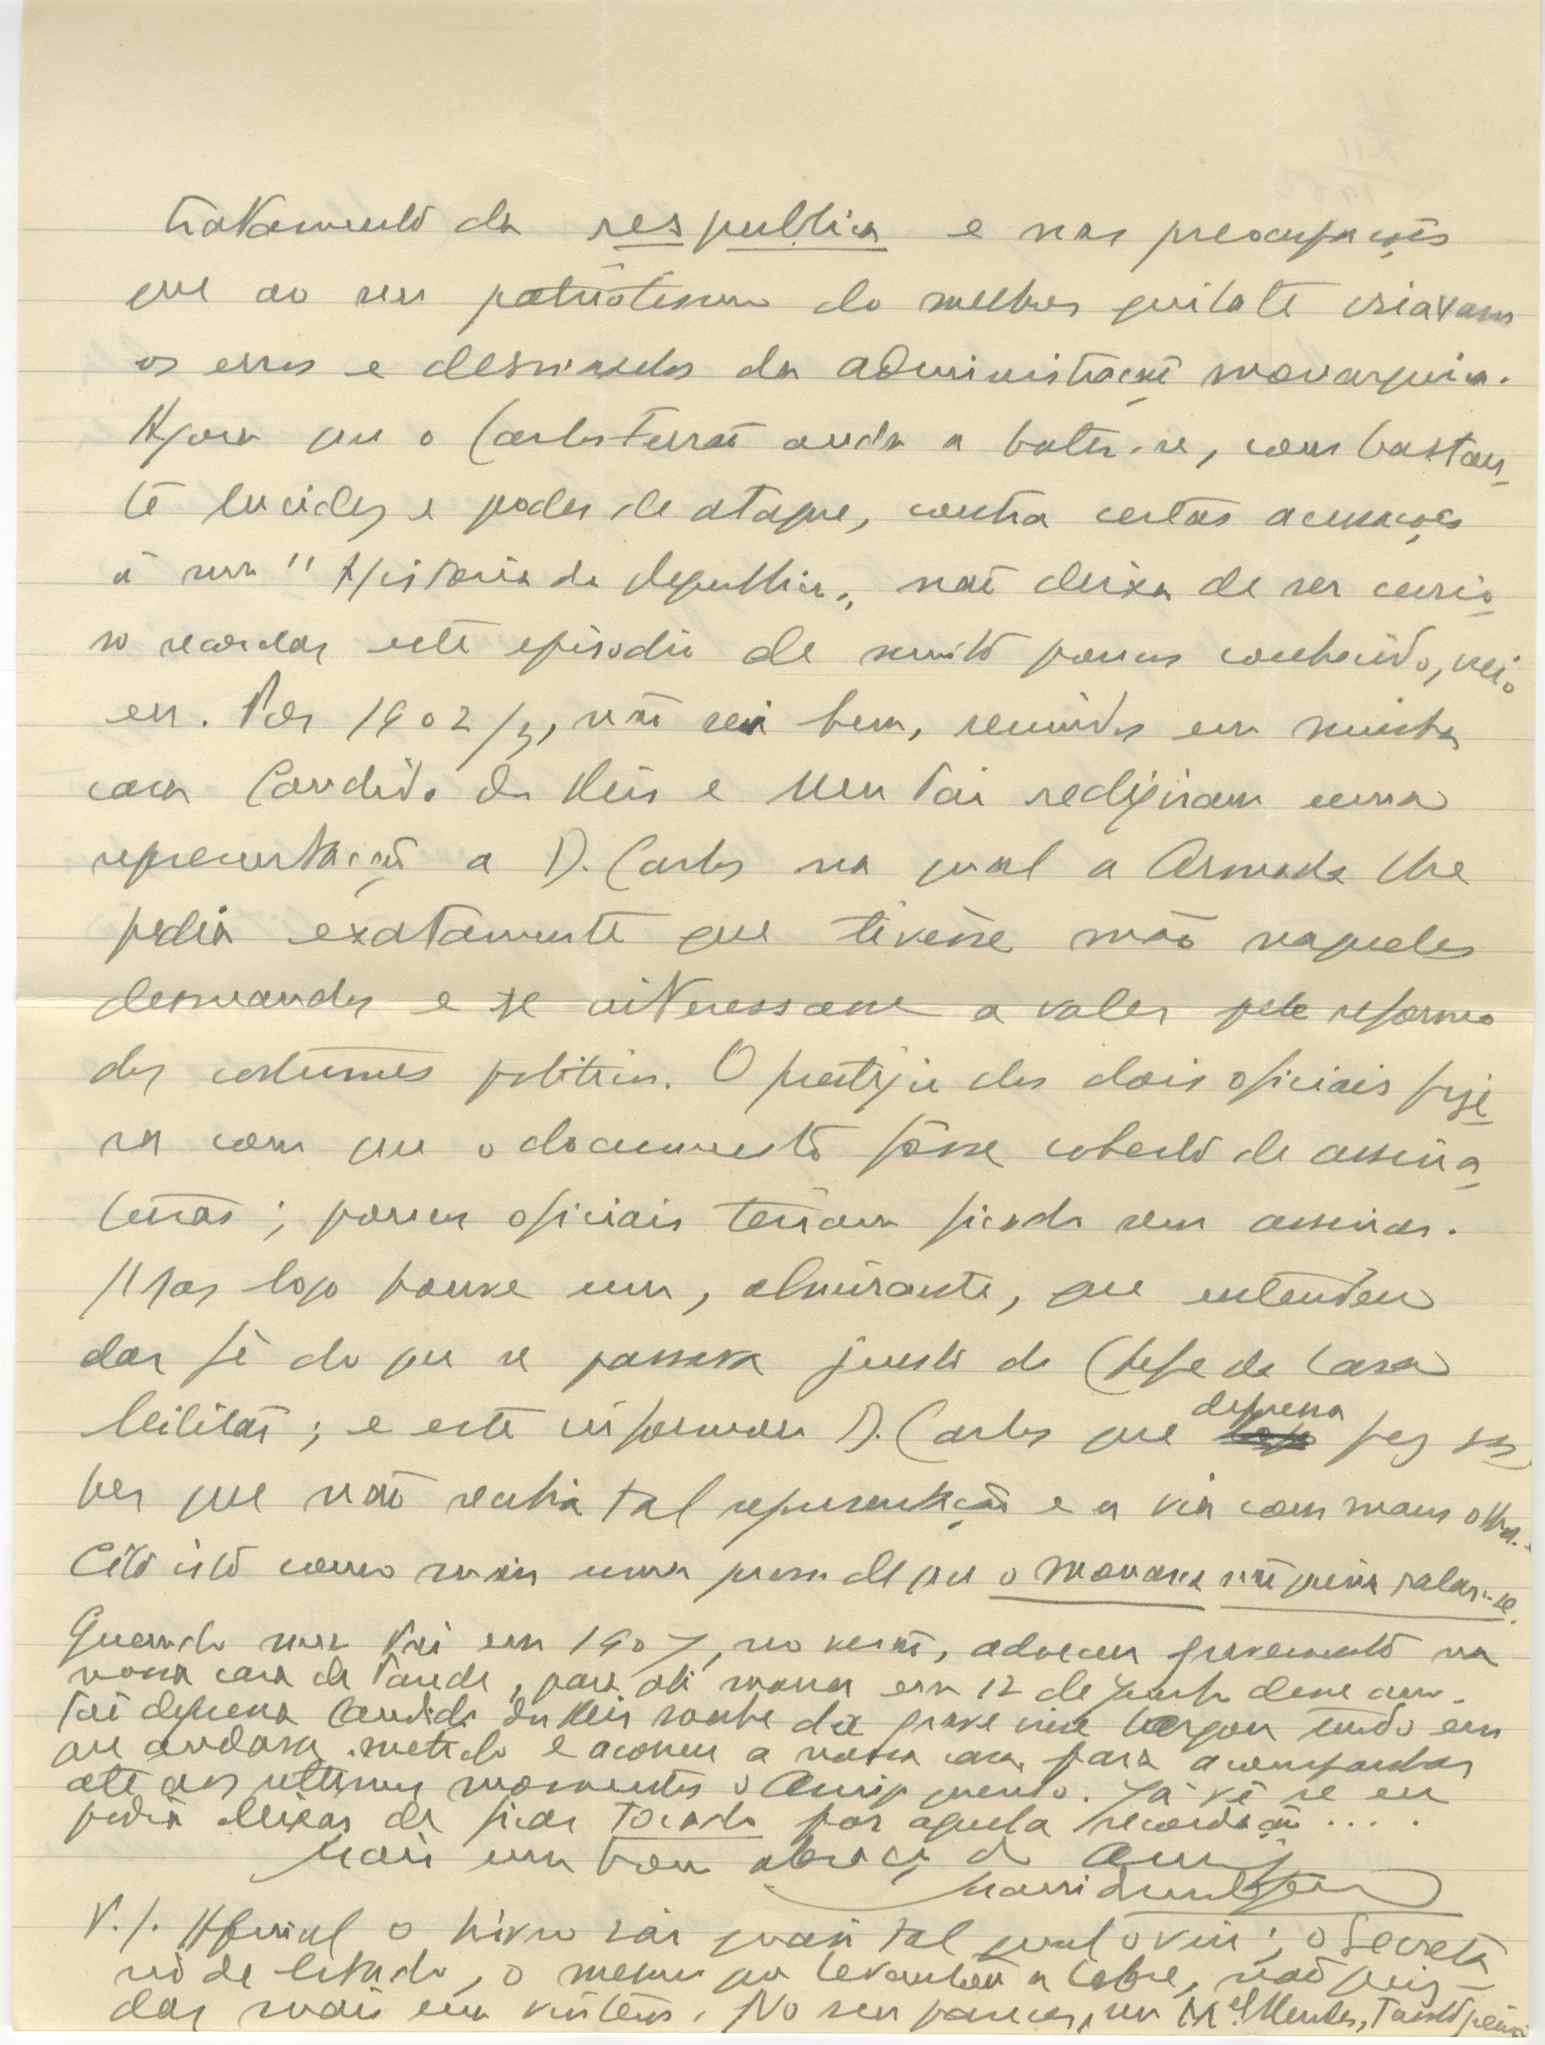 tratamento da res publica e nas preocupações
que ao seu patriotismo do melhor quilate criavam
os erros e desmandos da administração monarquica.
Agora que o Carlos Ferrão anda a bater-se, com bastan-
te lucidez e poder de ataque, contra certas acusações
á sua "Historia da Republica", não deixa de ser curio-
so recordar este episodio de muito poucos conhecido, creio
eu. Por 1902/3, não sei bem, reunidos em minha
casa Candido dos Reis e meu Pai redigiram uma
representação a D. Carlos na qual a Armada lhe
pedia exatamente que tivésse mão naqueles
desmandos e se interessasse a valer pela reforma
dos costumes politicos. O prestigio dos dois oficiais fize-
ra com que o documento fôsse coberto de assina-
turas; poucos oficiais teriam ficado sem assinar.
Mas logo houve um, almirante, que entendeu
dar fé do que se passava junto do Chefe da Casa
Militar; e este informou D. Carlos que depressa fez sa-
ber que não recebia tal representação e a via com maus olhos.
Cito isto como mais uma prova de que o monarca não queria ralar-se.
Quando meu Pai em 1907, no verão, adoeceu gravemente na
nossa casa de Parede, para ali morrer em 12 de Junho desse ano,
tão depressa Candido dos Reis soube da grave crise largou tudo em
que andava metido e acorreu a nossa casa para acompanhar
até aos ultimos momentos o Amigo querido. Já vê se eu
podia deixar de ficar tocado por aquela recordação ....
Mais um bom abraço do Amigo
P.S. Afinal o livro sai quasi tal qual o viu; o Secretá-
rio de Estado, o mesmo que levantou a lebre, não quiz
dar mais um vintem. No seu parecer, um M.el Mendes,